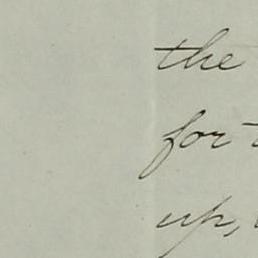 the
for
up,